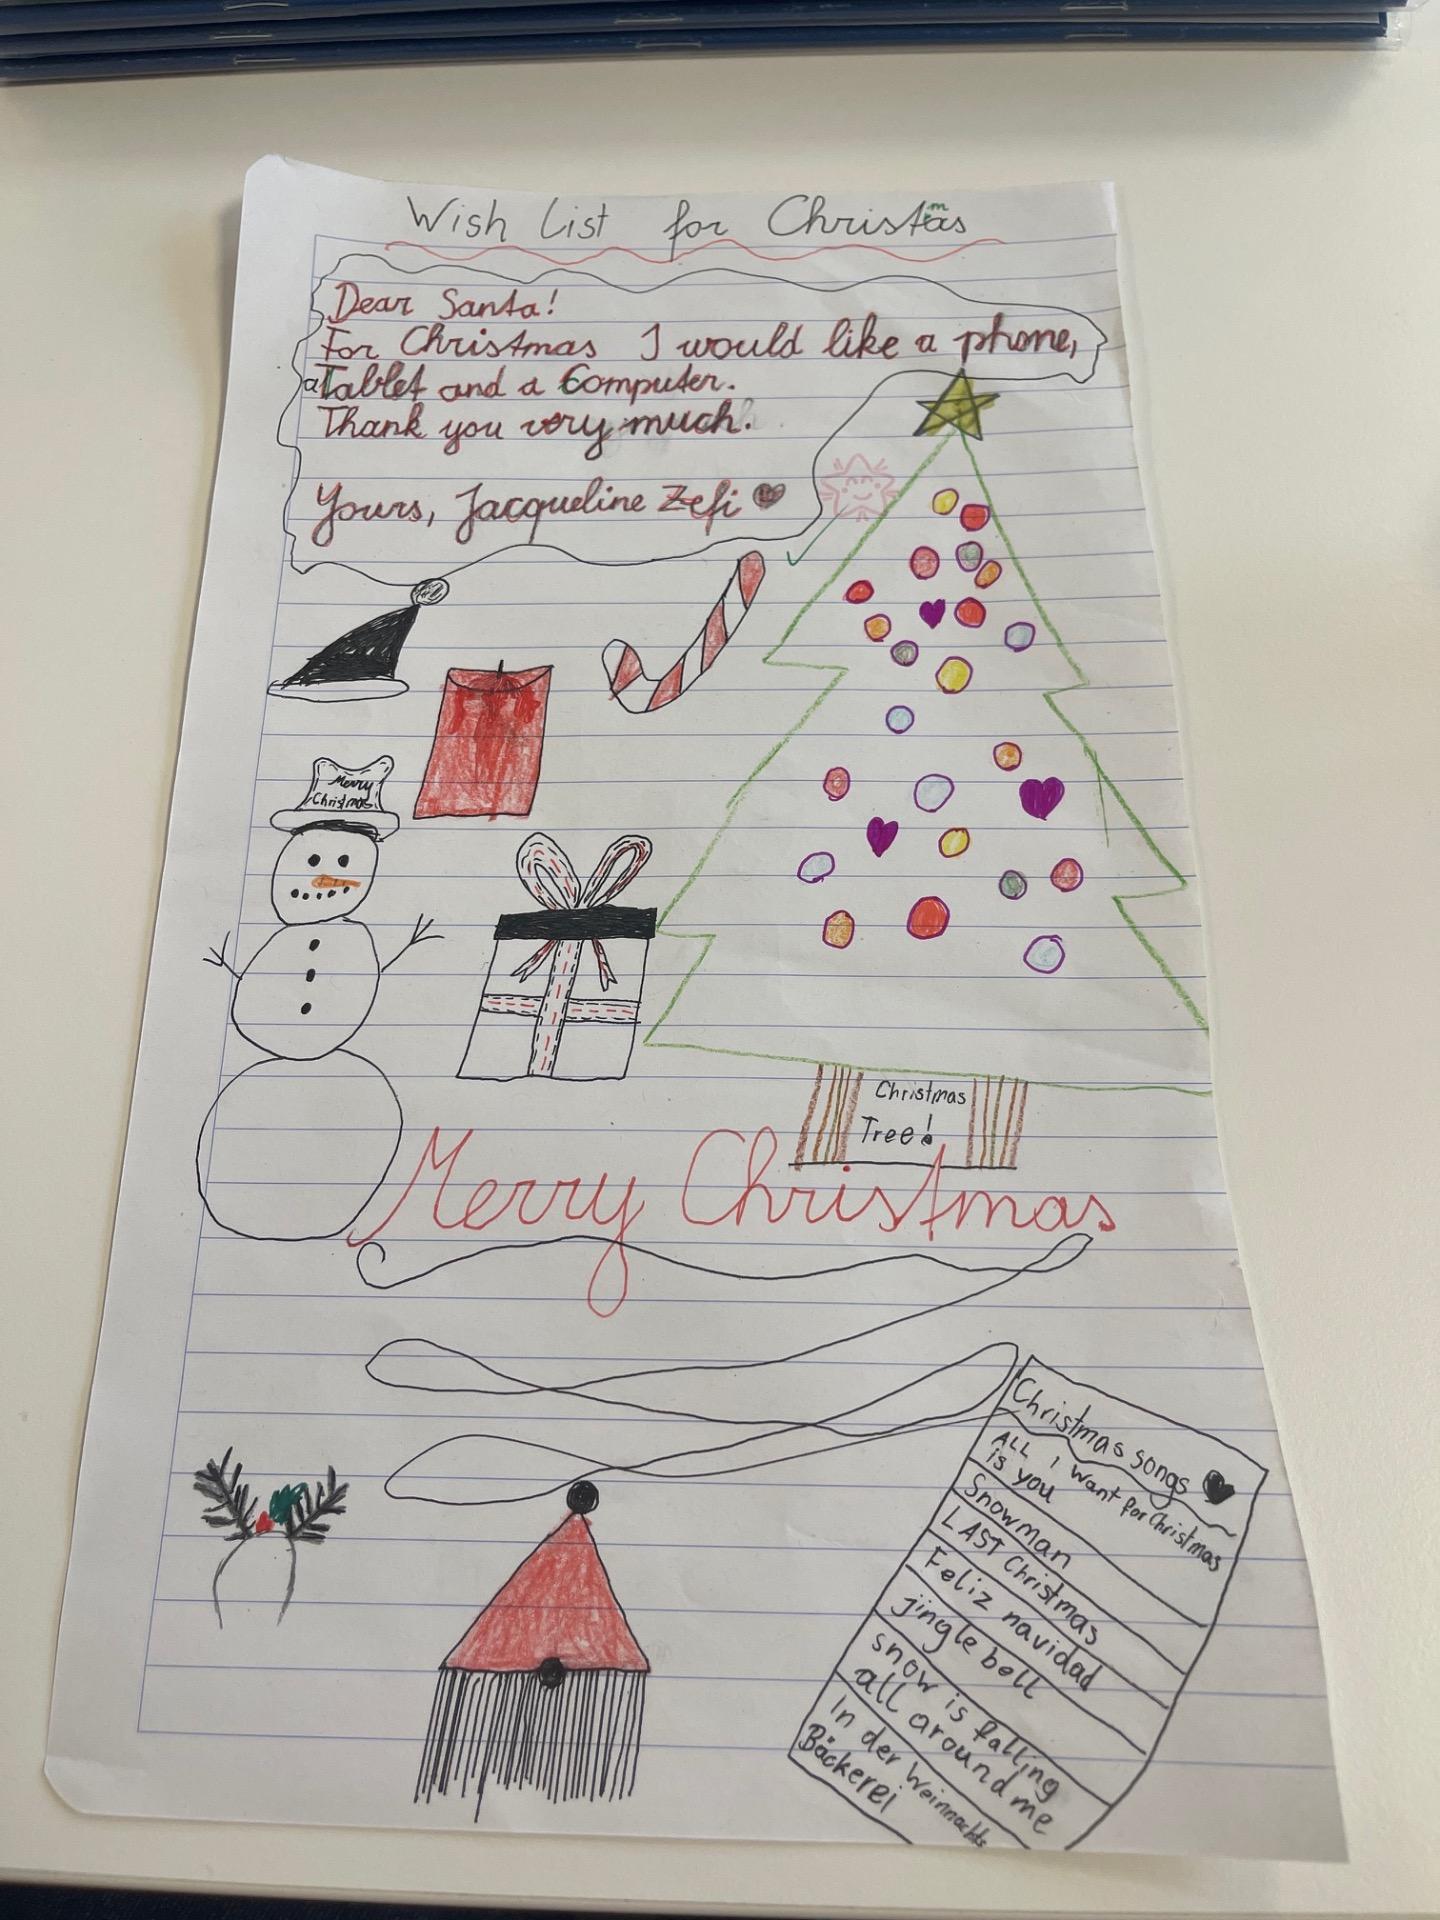 Wish List for Christmas
Dear Santa!
For Christmas I would like a phone,
a Tablet and a Computer.
Thank you very much.
Yours, Jacqueline Zefi
Merry
Christmas
Christmas
Tree!
Merry Christmas
Christmas songs
ALL I want for Christmas
is you
Snowman
LAST Christmas
Feliz navidad
jingle bell
snow is falling
all around me
In der Weinnachts
Bäckerei